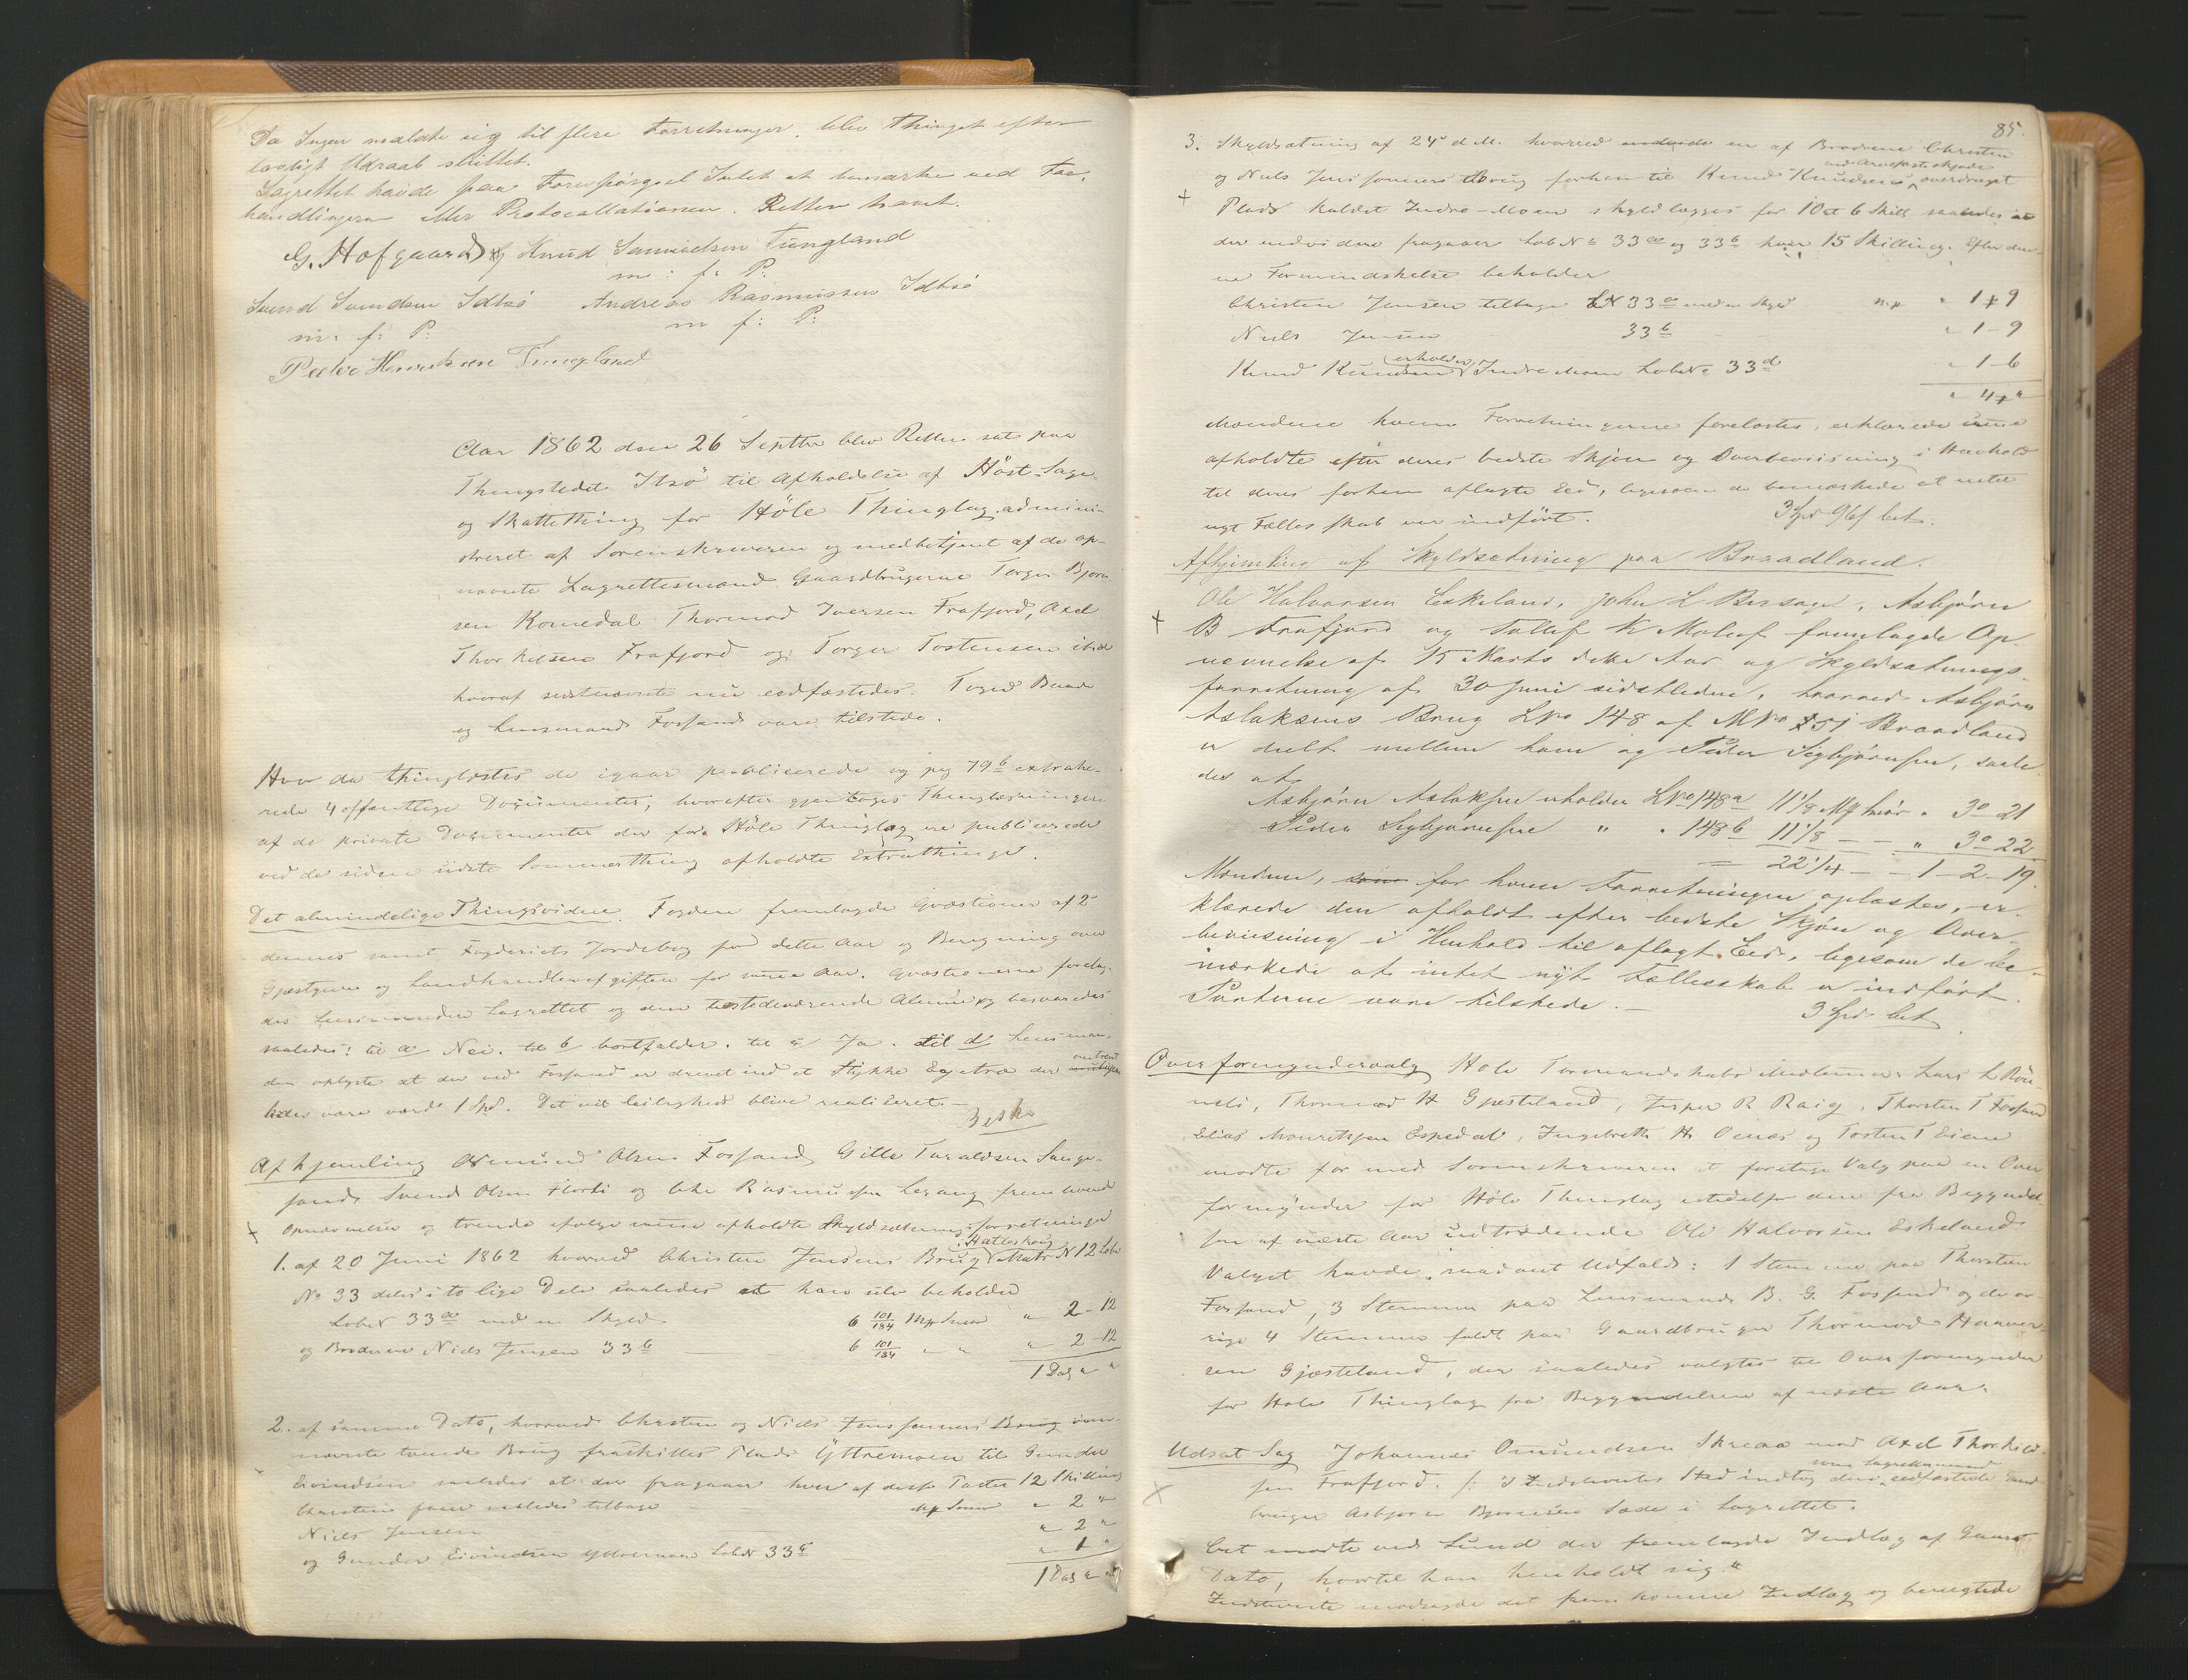 Da Ingen meldte sig til flere Forretninger, blev Thinget efter
lovligt Udraab sluttet.
Lagrettet havde paa Forespørgsel Intet at bemærke ved For-
handlingerne eller Protocollationen. Retten hævet.
G. Hofgaard Knud Samuelsen Tungland
m: f: P:
Svend Svendsen Idtsö Andreas Rasmussen Idtsö
m: f: P: m f: P:
Peder Henriksen Tungland
Aar 1862 den 26 Septbr blev Retten sat paa
Thingstedet Itsö til Afholdelse af Höst-Sage-
og Skattething for Höle Thinglag, admini-
streret af Sorenskriveren og medbetjent af de op-
nævnte Lagrettesmænd Gaardbrugerne Torger Bjørn-
sen Komedal Thormod Iversen Frafjord, Axel
Thorkelsen Frafjord og Torger Tostensen ibid
hvoraf sidstnævnte nu eedfæstedes. Foged Bunde
og Lensmand Forsand vare tilstede.
Hvor da thinglæstes de igaar publicerede og pag 79b extrahe-
rede 4 offentlige Documenter, hvorefter gjentoges Thinglæsningen
af de private Documenter der for Höle Thinglag ere publicerede
ved de siden sidste Sommerthing afholdte Extrathinge.
Det almindelige Thingsvidne. Fogden fremlagde Qvæstioner af 2
dennes samt Fogderiets Jordebog for dette Aar og Beregning over
Gjestgiver og Landhandlerafgiften for samme Aar. Qvæstionerne forelag-
des Lensmanden Lagrettet og den tilstedeværende Almue og besvaredes
saaledes: til a Nei. til b bortfalder. til c Ja. til d Lensman-
den oplyste at der ved Forsand er drevet ind et Stykke Egetræ der omtrent
kan være værd 1 Spd. Det vil leilighed blive realiseret.
Besk.
Afhjemling Osmund Olsen Forsand, Gitle Taraldsen Sange-
sand, Svend Olsen Florli og Ole Rasmussen Legang fremlevede
Opnævnelse og trende ifølge samme afholdte Skyldsætningsforretninger
1. af 20 Juni 1862 hvorved Christen Jensens Brug i Hatleskoug Matr N 12 Løb
No 33 deles i to lige Dele saaledes at han selv beholder
Løbe N 33a med en Skyld 6 101/184 Mrk Smør " 2-12
og Broderen Niels Jensen 33b 6 101/184 " " " 2-12
1 Dal " "
2. af samme Dato, hvorved Christen og Niels Jenssønners Brug oven-
nævnte tvende Brug fraskilles Plads Yttremoen til Gunder
Eivindsen saaledes at der fragaar hver af disse Parter 12 Skilling
Christen faaer saaledes tilbage Mrk Smør " 2 "
Niels Jensen " 2 "
og Gunder Eivindsen Yttremoen Løbe N 33c " 1 "
1 Dal " "
85.
3. Skyldsætning af 24de d.M. hvorved en af Brødrene Christen
og Niels Jenssønners Brug forhen til Knud Knudsen ved Arvefæsteskjøde overdraget
Plads kaldet Indre-Moen skyldlægges for 1 ort 6 Skill saaledes at
der endvidere fragaaer Løb No 33a og 33b hver 15 Skilling. Efter den-
ne Formindskelse beholder
Christen Jensen tilbage L N 33a med en Skyld Mrk " 1-9
Niels Jensen 33b " 1-9
Knud Knudsen erholder Indre Moen Løbe No 33d " 1-6
" 4 "
Mændene hvem Forretningerne forelæstes, erklærede disse
afholdte efter deres bedste Skjøn og Overbeviisning i Henhold
til deres forhen aflagte Eed, ligesom de bemærkede at intet
nyt Fællesskab var indfört.
3 Spd 96 s bet.
Afhjemling af Skyldsætning paa Braadland.
Ole Halvorsen Eskeland, John L Bersage, Asbjørn
B Frafjord og Tollef K Molaf fremlagde Op-
nævnelse af 15 Marts dette Aar og Skyldsætnings-
forretning af 30 Juni sidstleden, hvorved Asbjørn
Aslaksens Brug L No 148 af M No 51 Braadland
er deelt mellem ham og Peder Sigbjørnsen, saale-
des at
Asbjørn Aslaksen erholder L No 148a 11 1/8 Mrk Smør " 3o 21
Peder Sigbjørnsen " " 148b 11 1/8 — — " 3o 22
= 22 1/4 — — 1-2-19.
Mændene, for hvem Forretningen oplæstes, er-
klærede den afholdt efter bedste Skjøn og Over-
beviisning i Henhold til aflagt Eed, ligesom de be-
mærkede at intet nyt Fællesskab er indfört.
Parterne vare tilstede.
3 Spd bet.
Overformyndervalg Höle Formandskabs Medlemmer Lars L
Thormod H Gjesteland, Jesper R Raig, Thorsten T Forsand
Elias Mouritsen Espedal, Ingebreth H Oenæs og Tosten T Eiene
mödte for med Sorenskriveren at foretage Valg paa en Over
formynder for Höle Thinglag istedetfor den fra Begyndel-
sen af næste Aar udtrædende Ole Halvorsen Eskeland.
Valget havde saadant Udfald: 1 Stemme paa Thorsten
Forsand, 3 Stemmer paa Lensmand B. G. Forsand og de öv-
rige 4 Stemmer faldt paa Gaardbruger Thormod Haaver-
sen Gjesteland, der saaledes valgtes til Overformynder
for Höle Thinglag fra Begyndelsen af næste Aar.
Udsat Sag Johannes Omundsen Skreaa mod Axel Thorkild-
sen Frafjord. /: I Indstævntes Sted indtog den som Lagrettemand eedfæstede Gaard
bruger Asbjørn Bjørnsen Sæde i Lagrettet.
Cit mødte ved Lund der fremlagde Indlæg af Gaars
Dato, hvortil han henholdt sig.
Indstævnte modsagde det fremkomne Indlæg og benegtede